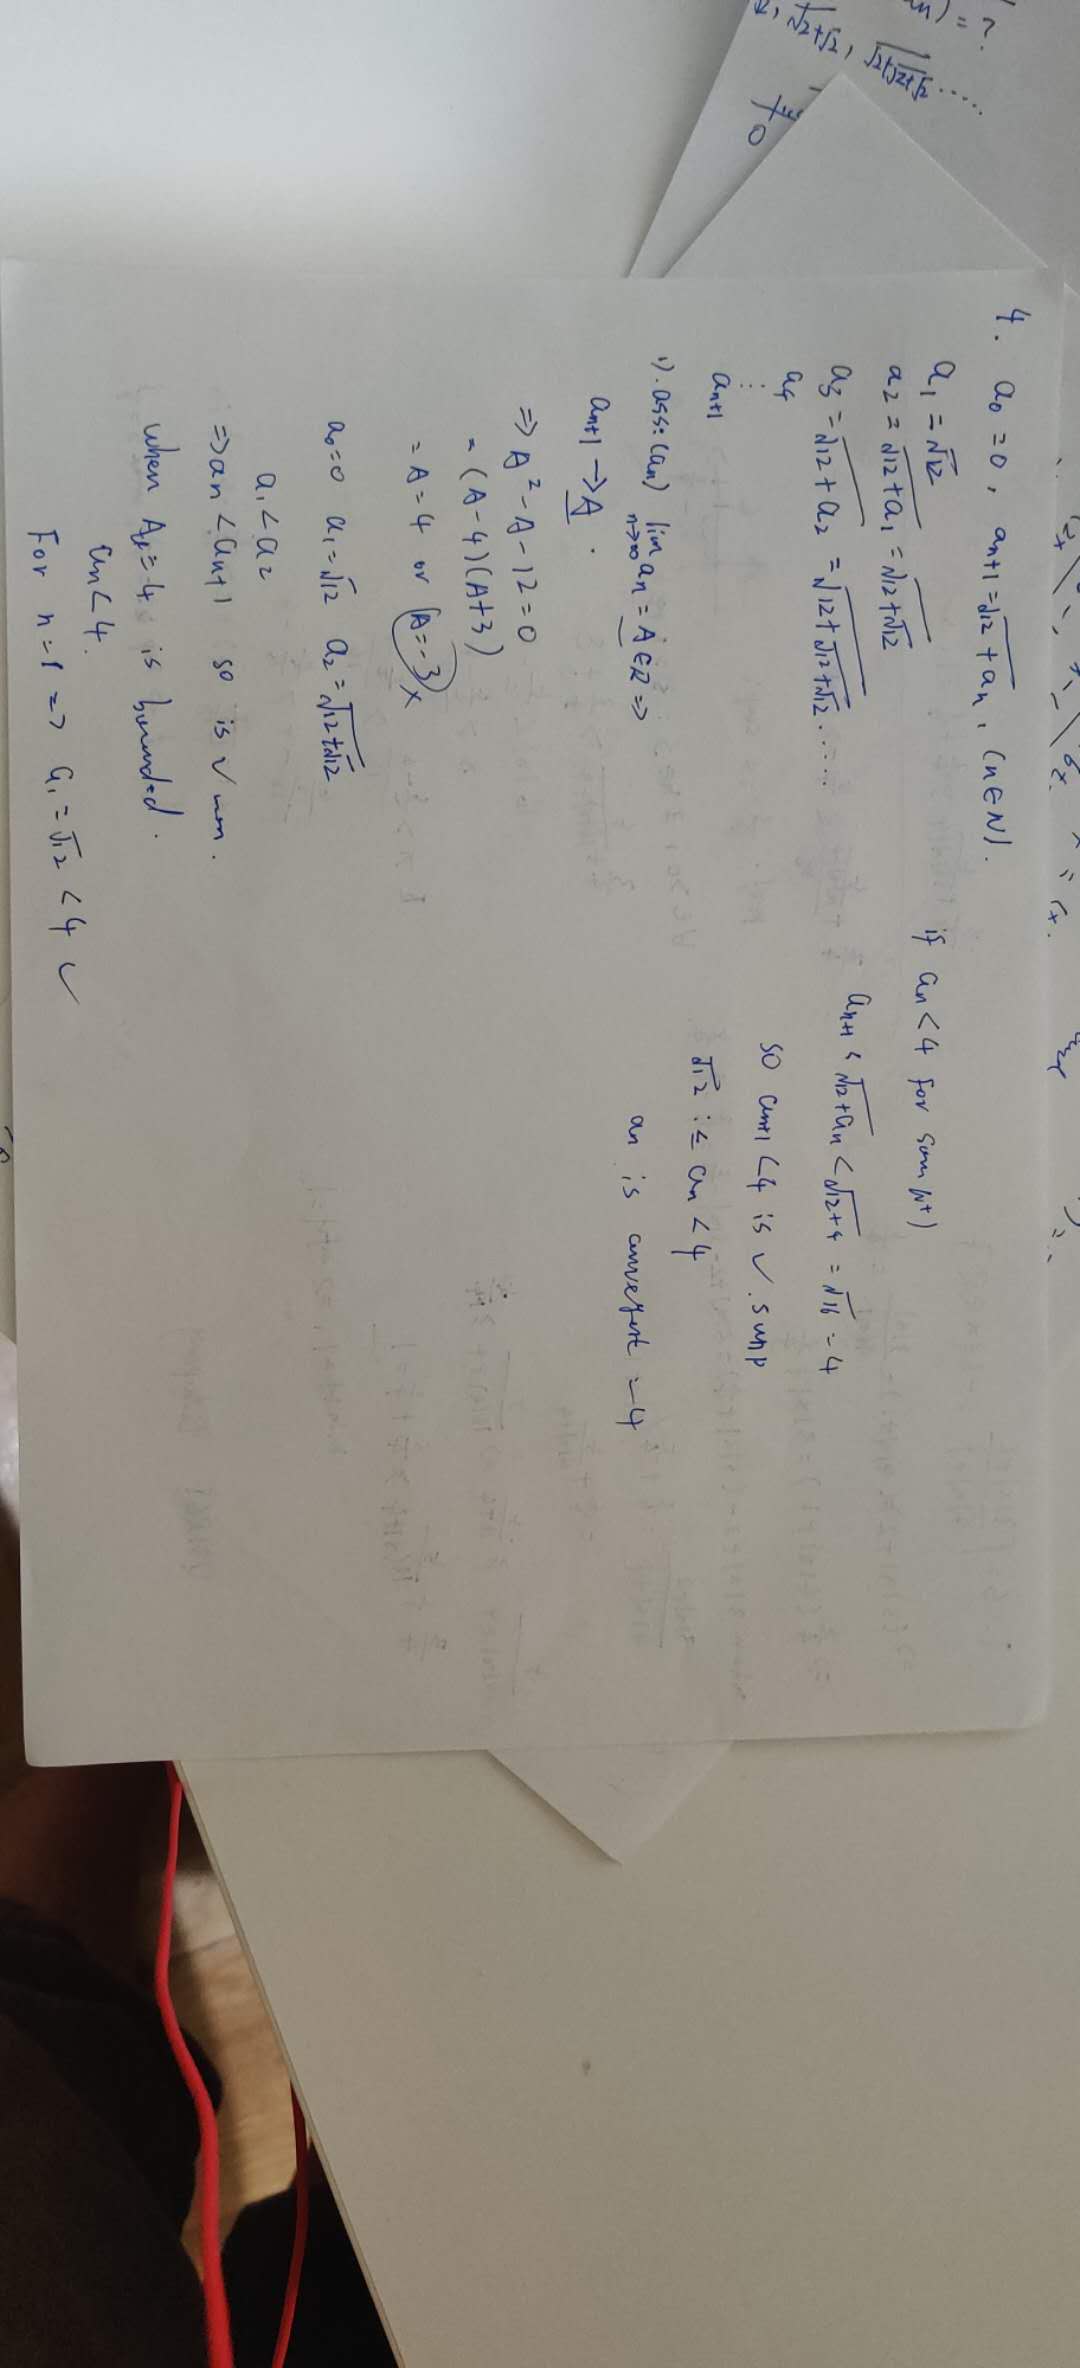 4. a₀ = 0, aₙ₊₁ = √(12 + aₙ), (n ∈ N).
a₁ = √12
a₂ = √(12 + a₁) = √(12 + √12)
a₃ = √(12 + a₂) = √(12 + √(12 + √12)) .....
a₄
⋮
aₙ₊₁
1). ass: (aₙ) lim n→∞ aₙ = A ∈ R ⇒
aₙ₊₁ → A.
⇒ A² - A - 12 = 0
= (A - 4)(A + 3)
= A = 4 or (A = -3) ×
a₀ = 0 a₁ = √12 a₂ = √(12 + √12)
a₁ < a₂
⇒ aₙ < aₙ₊₁ so is ✓
when = 4 is bounded.
aₙ < 4.
For n = 1 => a₁ = √12 < 4 ✓
if aₙ < 4 for
aₙ₊₁ √(12 + aₙ) < √(12 + 4) = √16 = 4
so aₙ₊₁ < 4 is ✓.
√12 ≤ aₙ < 4
aₙ is convergent = 4
= ?
√(2+√2), √(2+√(2+√2)) .....
0